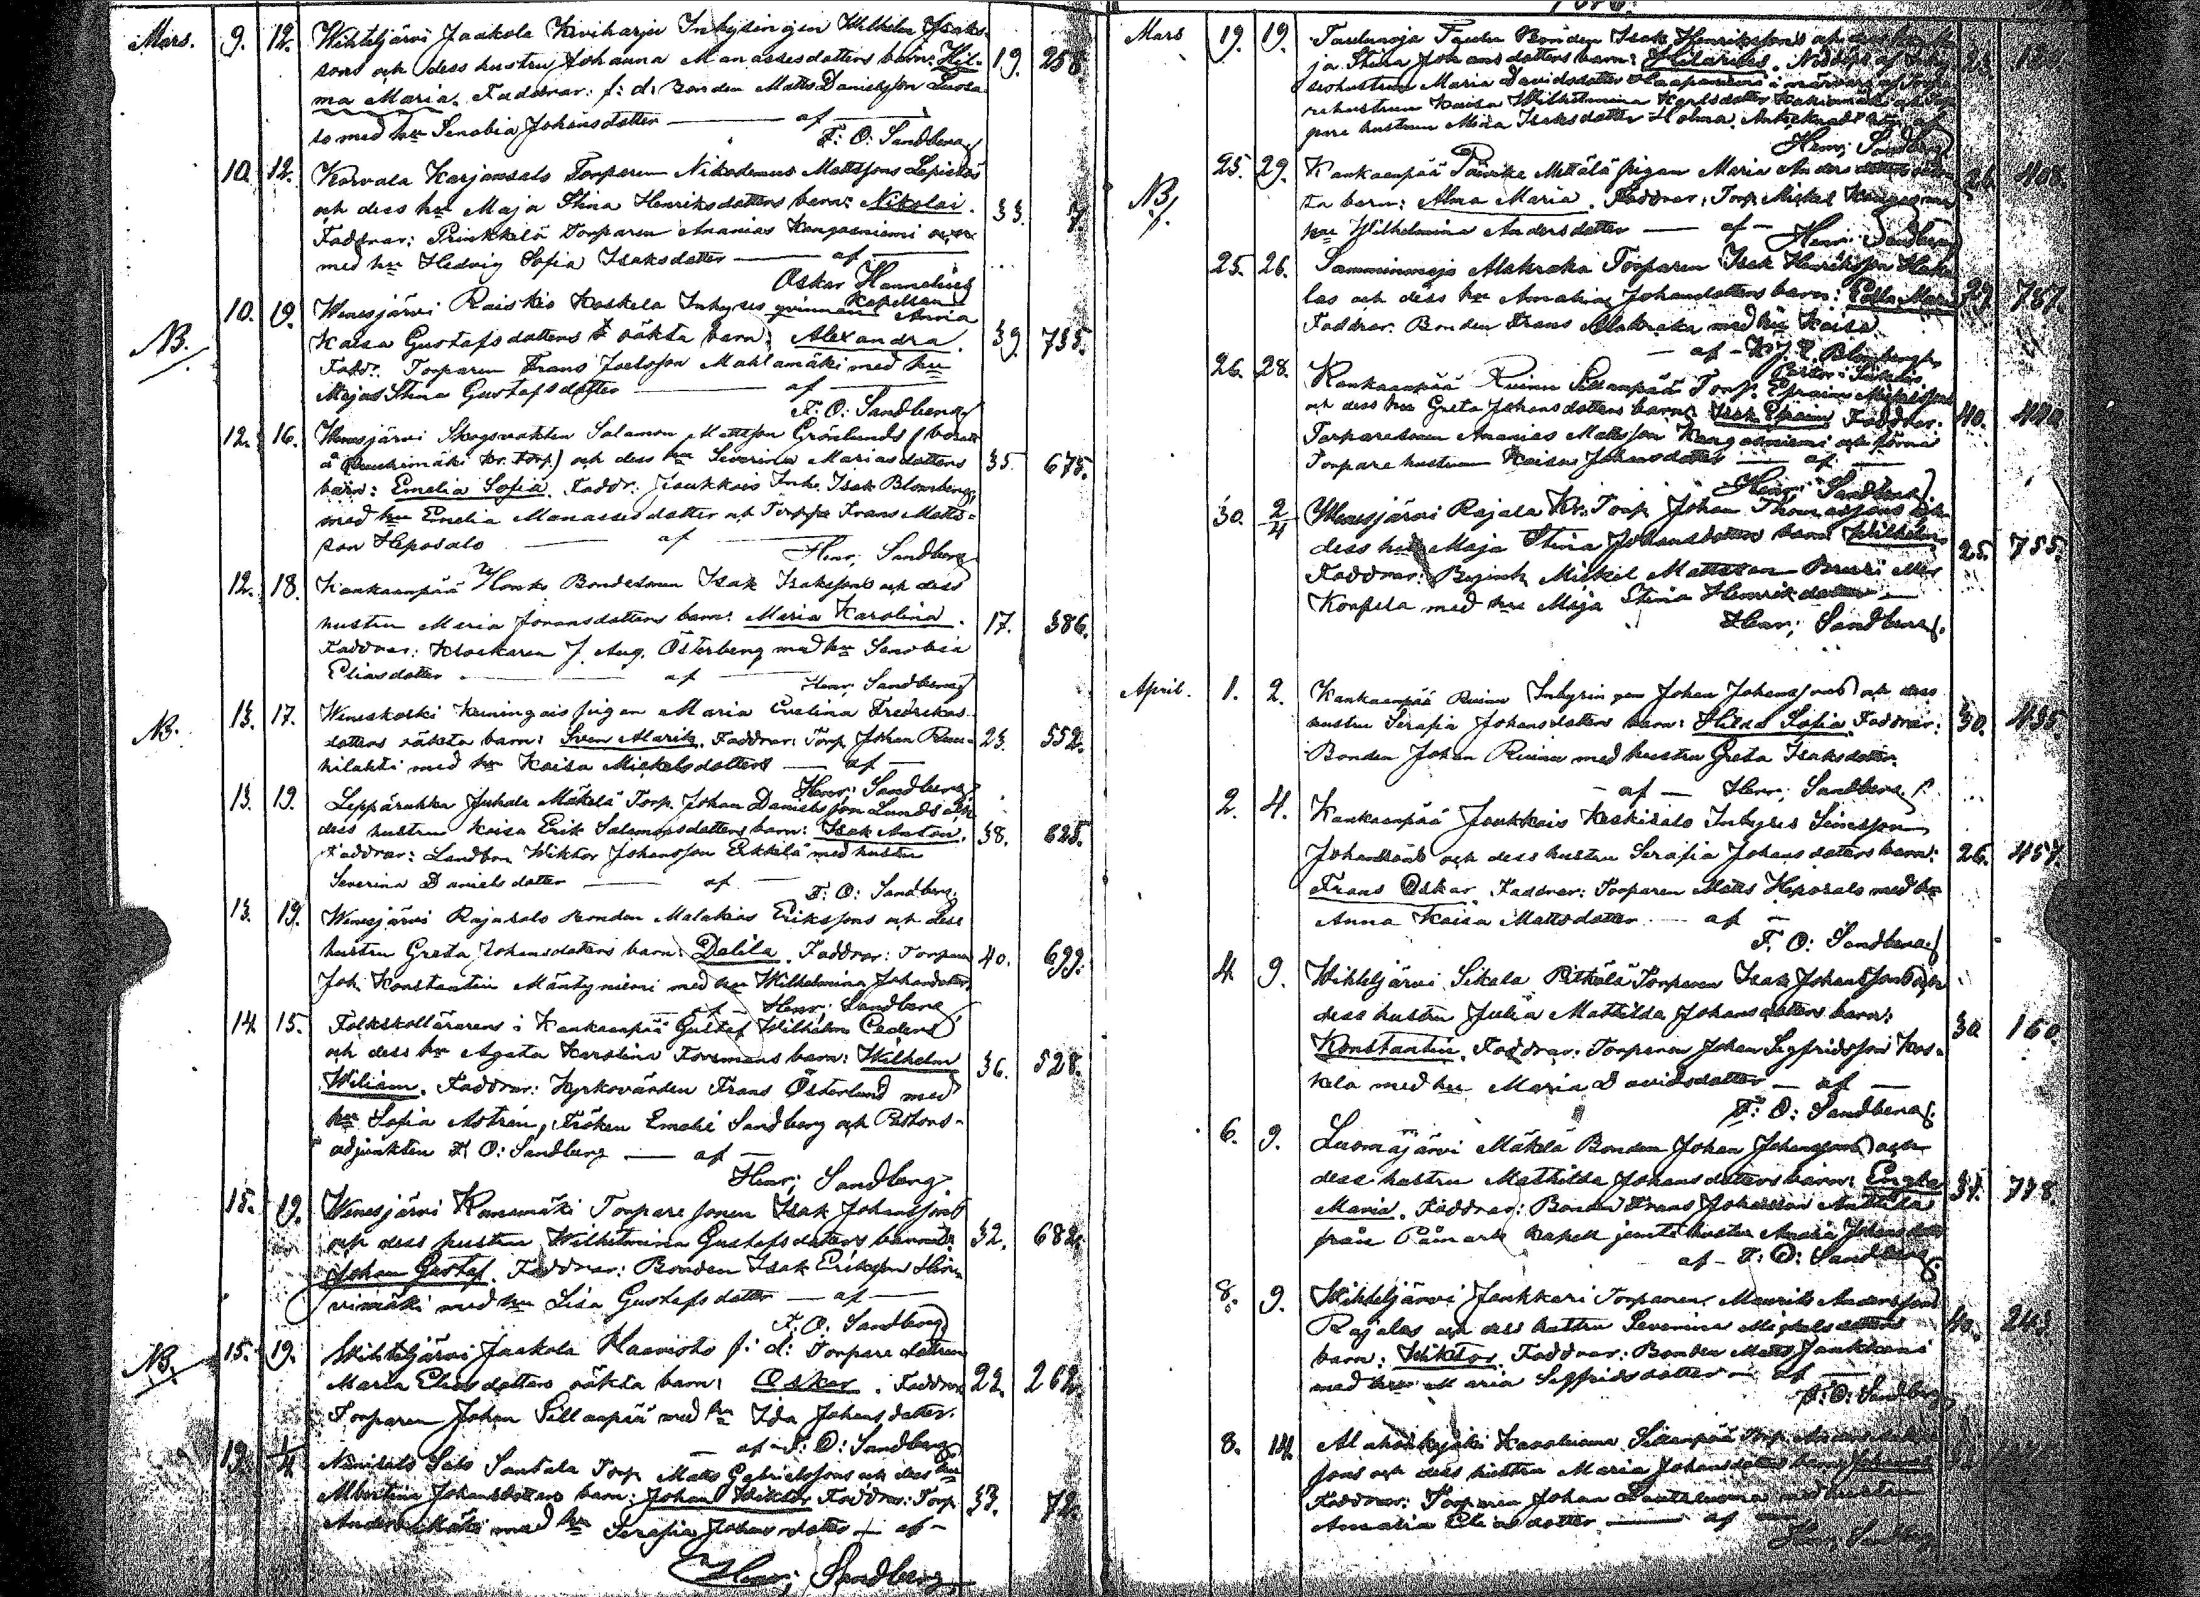 Mars. 9. 12. Wihteljärvi Jaakola Kiviharju Inhysingen Wilhelm Isaks-
sons och dess hustru Johanna Manassesdotters barn: Hil- 19. 258.
ma Maria. Faddrar: f: d: Bonden Matts Danielsson Luosa-
to med hu Senobia Johansdotter — af —
F: O: Sandberg
10. 12. Korvala Karjansalo Torparen Nikodemus Mattssons Lepistös
och dess hu Maja Stina Henriksdotters barn: Nikolai. 33. 7.
Faddrar: Prinkkilä Torparen Ananias Kangasniemi
med hu Hedvig Sofia Isaksdotter — af —
Oskar Hannelius
Kapellan
10. 19. Wenesjärvi Raiskio Koskela Inhyses qvinnan Anna
NB. Kaisa Gustafsdotters oäkta barn: Alexandra. 39. 735.
Fadd: Torparen Frans Joelsson Mahlamäki med hu
Maja Stina Gustafsdotter — af —
F: O: Sandberg
12. 16. Wenesjärvi Skogsvakten Salomon Mattsson Grönlunds (boende
å Kr. Torp) och dess hu Severina Mariasdotters 35. 675.
barn: Emelia Sofia. Faddr: Jaukkais Inh. Isak Blomberg
med hu Emelia Manassesdotter och Torpp. Frans Matts-
son Heposalo — af —
Henr; Sandberg
12. 18. Kankaanpää Honko Bondesonen Isak Isakssons och dess
hustru Maria Joransdotters barn: Maria Karolina. 17. 386.
Faddrar: Klockaren J. Aug. Österberg med hu Senobia
Eliasdotter — af —
Henr; Sandberg
NB. 13. 17. Weneskoski Kuningais pigan Maria Evelina Fredrikas-
dotters oäkta barn: Sven Marik. Faddrar: Torp. Johan Ruu- 23. 552.
hilahti med hu Kaisa Mickelsdotters — af —
Henr; Sandberg
13. 19. Leppäruhka Juhala Mäkelä Torp. Johan Danielsson Lunds och
dess hustru Kaisa Erik Salomonsdotters barn: Isak Anton. 38. 625.
Faddrar: Landbon Wiktor Johansson Erkkilä med hustru
Severina Danielsdotter — af —
F: O: Sandberg.
13. 19. Wenesjärvi Rajasalo Bonden Malakias Erikssons och dess
hustru Greta Johansdotters barn: Dalila. Faddrar: Torparen 40. 699.
Joh. Konstantin Mäntyniemi med hu Wilhelmina Johansdotter
— af — Henr; Sandberg
14. 15. Folkskollärarens i Kankaanpää Gustaf Wilhelm Ceders
och dess hu Agata Karolina Forsmans barn: Wilhelm 36. 528.
Wiliam. Faddrar: Kyrkovärden Frans Österlund med
hu Sofia Astrén, Fröken Emelié Sandberg och Pastors-
adjunkten F. O: Sandberg — af —
Henr; Sandberg
15. 19. Wenesjärvi Torparesonen Isak Johanssons
och dess hustru Wilhelmina Gustafsdotters barn: 32. 682.
Johan Gustaf. Faddrar: Bonden Isak Eriksson
med hu Lisa Gustafsdotter — af —
F: O: Sandberg
NB. 15. 19. Wihteljärvi Jaakola Haavisto f: d: Torparedottren
Maria Eliasdotters oäkta barn: Oskar. Faddrar 22. 262.
Torparen Johan Sillanpää med hu Ida Johansdotter.
— af — F: O: Sandberg
19. 1/4 Niinisalo Salo Santala Torp. Matts Gabrielssons och dess hu
Albertina Johansdotters barn: Johan Wiktor. Faddrar: Torp. 33. 72.
Anders Mäki med hu Serafia Johansdotter — af —
Henr; Sandberg
Mars 19. 19. Bonden Isak Henrikssons och dess hustru Ma-
ja Stina Johansdotters barn: Hilarius. Nöddöpt af
hustrun Maria Davidsdotter Haapaniemi i närvaro af Torpa-
rehustrun Kaisa Wilhelmina Karlsdotter och Tor-
pare hustrun Mina Isaksdotter Holma. Antecknadt
Henr; Sandberg
25. 29. Kankaanpää Mettälä pigan Maria Andersdotters oäk-
NB. ta barn: Alma Maria. Faddrar: Torp. Mickel 26. 408.
hu Wilhelmina Andersdotter — af —
Henr: Sandberg
25. 26. Samminmaja Alahraka Torparen Isak Henriksson
las och dess hu Amalia Johansdotters barn: Edla Maria 29. 787.
Faddrar: Bonden Frans Alahraka med hu Kaisa
— af — K. J. E. Blomberg
Pastor i
26. 28. Kankaanpää Ruinu Sillanpää Torp. Epraim Mickelssons
och dess hu Greta Johansdotters barn: Isak Epraim. Faddrar: 40. 420.
Torparesonen Ananias Mattsson Kangasniemi och förra
Torparehustrun Kaisa Johansdotter — af —
Henr; Sandberg.
30. 2/4 Wenesjärvi Rajala Kr. Torp. Johan Thomassons och
dess hu Maja Stina Johansdotters barn: Wilhelm 25. 755.
Faddrar: Mickel Mattsson
med hu Maja Stina Henriksdotter —
Henr; Sandberg.
April. 1. 2. Kankaanpää Ruinu Inhysingen Johan Johanssons och dess
hustru Serafia Johansdotters barn: Hilda Sofia. Faddrar: 30. 435.
Bonden Johan Ruinu med hustru Greta Isaksdotter.
— af — Henr; Sandberg
2. 4. Kankaanpää Jaukkais Keskisalo Inhyses
Johanssons och dess hustru Serafia Johansdotters barn: 26. 457.
Frans Oskar. Faddrar: Torparen Matts Heposalo med hu
Anna Kaisa Mattsdotter — af —
F. O: Sandberg
4. 9. Wihteljärvi Sikala Pitkälä Torparen Isak Johanssons och
dess hustru Julia Mathilda Johansdotters barn: 30. 160.
Konstantin. Faddrar: Torparen Johan Segfridsson Kos-
kela med hu Maria Davidsdotter — af —
F: O: Sandberg.
6. 9. Luomajärvi Mäkelä Bonden Johan Johanssons och
dess hustru Mathilda Johansdotters barn: Engla 798.
Maria. Faddrar: Bonden Frans Johansson Anttila
från Påmark Kapell jemte hustru Johansdotter
af — F: O: Sandberg.
8. 9. Wihteljärvi Jankkari Torparen Maurits Anderssons
Rajalas och dess hustru Severina Mickelsdotters 40. 243.
barn: Wiktor. Faddrar: Bonden Matts Jankkari
med hu Maria Segfridsdotter — af —
F: O: Sandberg
8. 14. Sillanpää Torp.
sons och dess hustru Maria Johansdotters barn:
Faddrar: Torparen Johan med hustru
Amalia Eliasdotter — af —
Henr; Sandberg